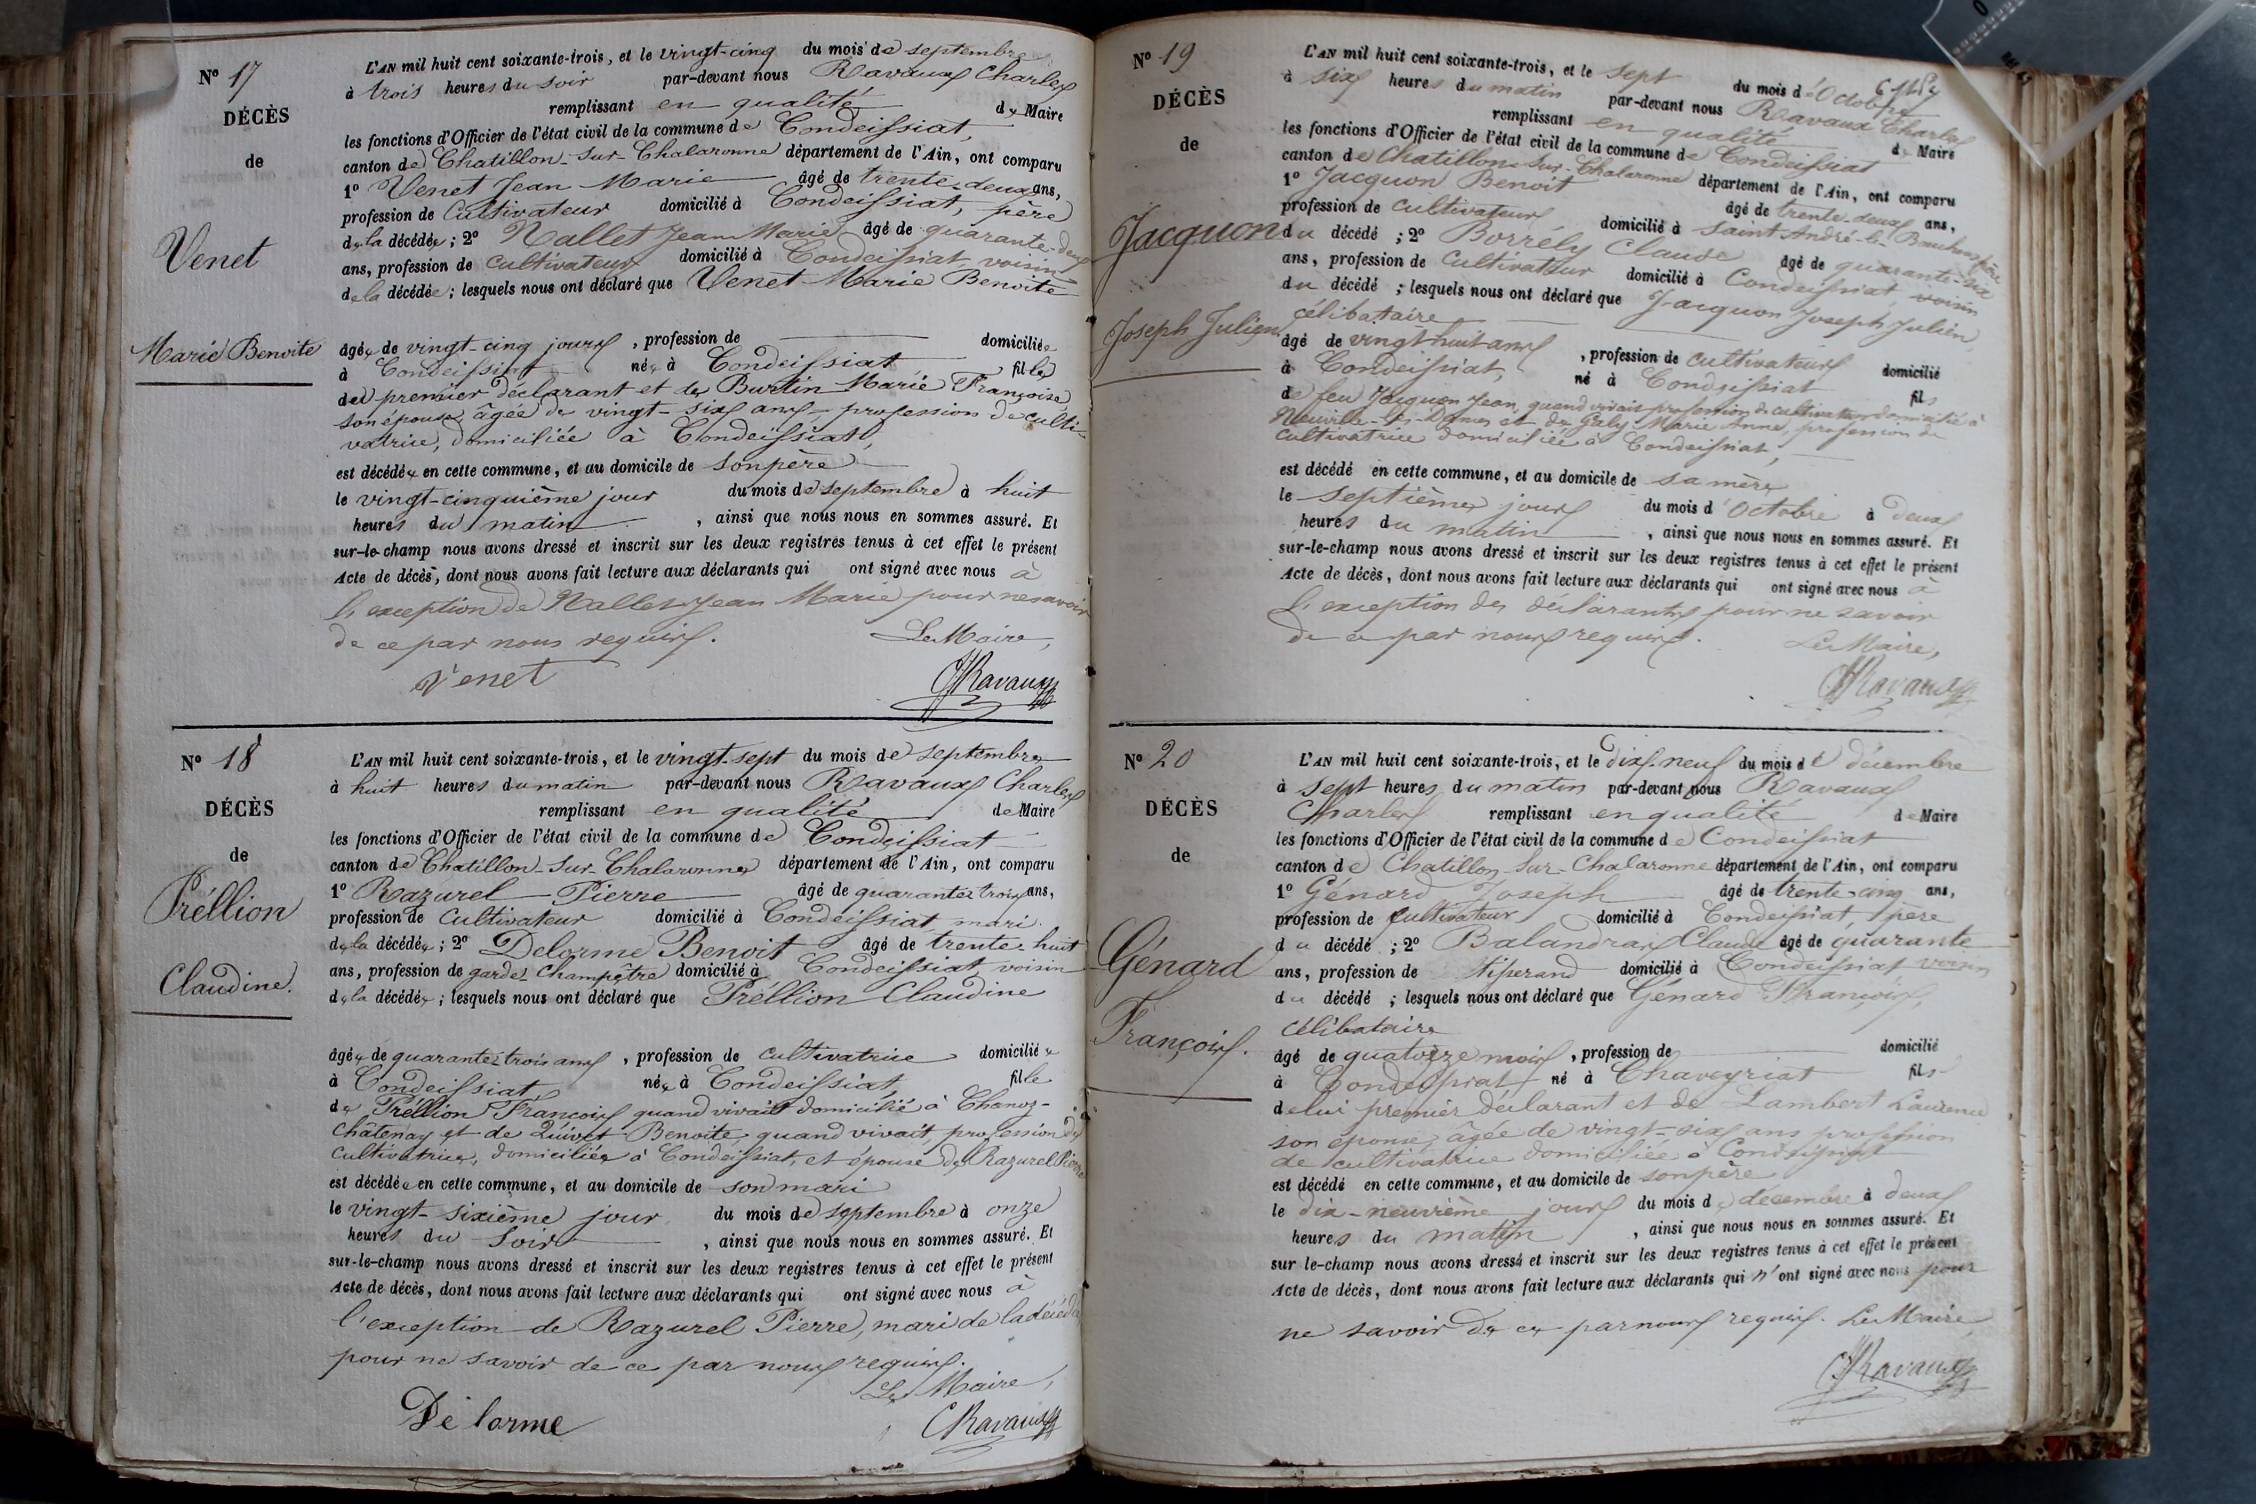 N° 17
DÉCÈS
de
Venet
Marie Benoite
L'AN mil huit cent soixante-trois, et le vingt-cinq du mois de septembre
à trois heures du soir par-devant nous Ravaux Charles
remplissant en qualité de Maire
les fonctions d'Officier de l'état civil de la commune de Condeissiat,
canton de Chatillon-sur-Chalaronne département de l'Ain, ont comparu
1° Venet Jean Marie âgé de trente-deux ans,
profession de cultivateur domicilié à Condeissiat, père
de la décédée ; 2° Nallet Jean Marie âgé de quarante-deux
ans, profession de cultivateur domicilié à Condeissiat voisin
de la décédée ; lesquels nous ont déclaré que Venet Marie Benoite
âgée de vingt-cinq jours, profession de domiciliée
à Condeissiat née à Condeissiat fille
de premier déclarant et de Burtin Marie Françoise
son épouse âgée de vingt-six ans profession de culti-
vatrice, domiciliée à Condeissiat,
est décédée en cette commune, et au domicile de son père
le vingt-cinquième jour du mois de septembre à huit
heures du matin, ainsi que nous nous en sommes assuré. Et
sur-le-champ nous avons dressé et inscrit sur les deux registres tenus à cet effet le présent
Acte de décès, dont nous avons fait lecture aux déclarants qui ont signé avec nous à
l'exception de Nallet Jean Marie pour ne savoir
de ce par nous requis. Le Maire,
Venet CRavaux
N° 18
DÉCÈS
de
Préllion
Claudine.
L'AN mil huit cent soixante-trois, et le vingt-sept du mois de septembre
à huit heures du matin par-devant nous Ravaux Charles
remplissant en qualité de Maire
les fonctions d'Officier de l'état civil de la commune de Condeissiat
canton de Chatillon-sur-Chalaronne département de l'Ain, ont comparu
1° Razurel Pierre âgé de quarante trois ans,
profession de cultivateur domicilié à Condeissiat, mari
de la décédée ; 2° Delorme Benoit âgé de trente huit
ans, profession de garde champêtre domicilié à Condeissiat voisin
de la décédée ; lesquels nous ont déclaré que Préllion Claudine
âgée de quarante trois ans, profession de cultivatrice domiciliée
à Condeissiat, née à Condeissiat, fille
de Préllion François quand vivait domicilié à Chanoz-
Châtenay et de Quivet Benoite, quand vivait, profession de
cultivatrice, domiciliée à Condeissiat, et épouse de Razurel Pierre
est décédée en cette commune, et au domicile de son mari
le vingt-sixième jour du mois de septembre à onze
heures du soir, ainsi que nous nous en sommes assuré. Et
sur-le-champ nous avons dressé et inscrit sur les deux registres tenus à cet effet le présent
Acte de décès, dont nous avons fait lecture aux déclarants qui ont signé avec nous à
l'exception de Razurel Pierre, mari de la décédée
pour ne savoir de ce par nous requis.
Le Maire,
Delorme CRavaux
N° 19
DÉCÈS
de
Jacquon
Joseph Julien
L'AN mil huit cent soixante-trois, et le sept du mois d'Octobre
à six heures du matin par-devant nous Ravaux Charles
remplissant en qualité de Maire
les fonctions d'Officier de l'état civil de la commune de Condeissiat
canton de Chatillon-sur-Chalaronne département de l'Ain, ont comparu
1° Jacquon Benoit âgé de trente-deux ans,
profession de cultivateur domicilié à Saint André-le-Bouchoux frère
du décédé ; 2° Borrély Claude âgé de quarante-six
ans, profession de cultivateur domicilié à Condeissiat, voisin
du décédé ; lesquels nous ont déclaré que Jacquon Joseph Julien,
célibataire
âgé de vingt huit ans, profession de cultivateur domicilié
à Condeissiat, né à Condeissiat fils
de feu Jacquon Jean, quand vivait profession de cultivateur domicilié à
Neuville-les-Dames et de Galy Marie Anne, profession de
cultivatrice domiciliée à Condeissiat,
est décédé en cette commune, et au domicile de sa mère
le septième jour du mois d'Octobre à deux
heures du matin, ainsi que nous nous en sommes assuré. Et
sur-le-champ nous avons dressé et inscrit sur les deux registres tenus à cet effet le présent
Acte de décès, dont nous avons fait lecture aux déclarants qui ont signé avec nous à
l'exception des déclarants pour ne savoir
de ce par nous requis. Le Maire,
CRavaux
N° 20
DÉCÈS
de
Génard
François.
L'AN mil huit cent soixante-trois, et le dix-neuf du mois de décembre
à sept heures du matin par-devant nous Ravaux
Charles remplissant en qualité de Maire
les fonctions d'Officier de l'état civil de la commune de Condeissiat
canton de Chatillon-sur-Chalaronne département de l'Ain, ont comparu
1° Génard Joseph âgé de trente-cinq ans,
profession de cultivateur domicilié à Condeissiat, père
du décédé ; 2° Balandras Claude âgé de quarante
ans, profession de tisserand domicilié à Condeissiat voisin
du décédé ; lesquels nous ont déclaré que Génard François,
célibataire
âgé de quatorze mois, profession de domicilié
à Condeissiat né à Chaveyriat fils
de lui premier déclarant et de Lambert Laurence
son épouse, âgée de vingt-six ans profession
de cultivatrice domiciliée à Condeissiat
est décédé en cette commune, et au domicile de son père
le dix-neuvième jour du mois de décembre à deux
heures du matin, ainsi que nous nous en sommes assuré. Et
sur le-champ nous avons dressé et inscrit sur les deux registres tenus à cet effet le présent
Acte de décès, dont nous avons fait lecture aux déclarants qui n'ont signé avec nous pour
ne savoir de ce par nous requis. Le Maire,
CRavaux